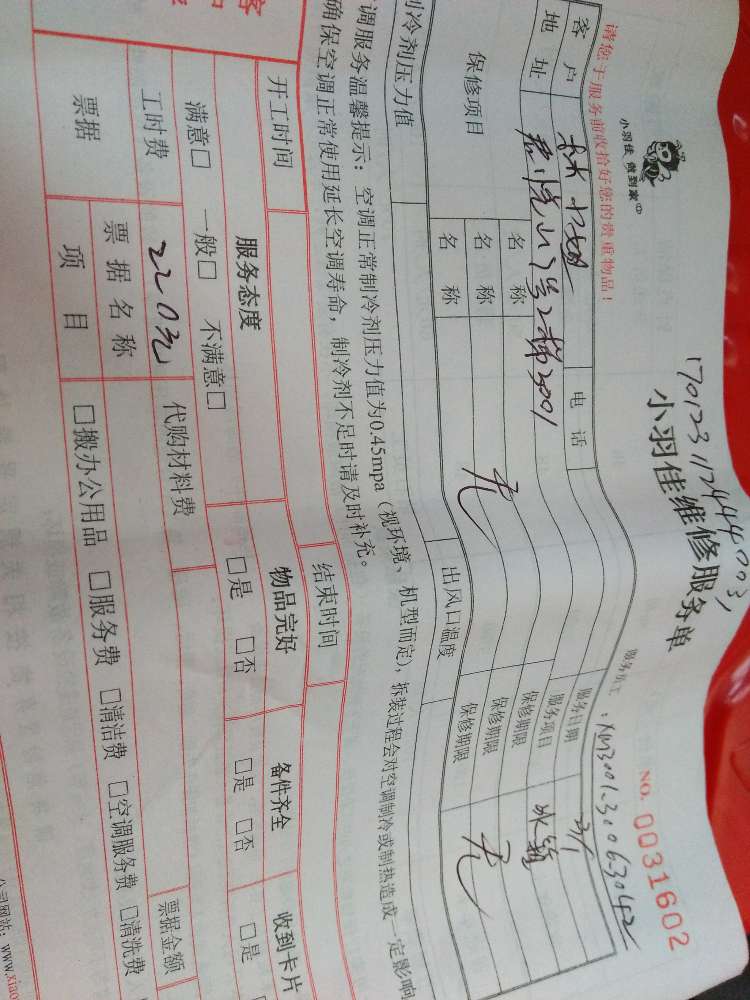 小羽佳 做到家
1701231124440031
小羽佳维修服务单
NO. 0031602
请您于服务前收拾好您的贵重物品！
服务员工：XM3001.3006.3042
客户
电话
服务日期 2/1
地址
服务项目
保修项目 名称 保修期限
名称 无 保修期限 无
名称 保修期限
制冷剂压力值 出风口温度
调服务温馨提示：空调正常制冷剂压力值为0.45mpa（视环境、机型而定），拆装过程会对空调制冷或制热造成一定影响
确保空调正常使用延长空调寿命，制冷剂不足时请及时补充。
开工时间 结束时间
服务态度 物品完好 备件齐全 收到卡片
满意□ 一般□ 不满意□ □是 □否 □是 □否 □是
工时费 220元 代购材料费
票据 票据名称 票据金额
项目 □搬办公用品 □服务费 □清洁费 □空调服务费 □清洗费
公司网站：www.xiao